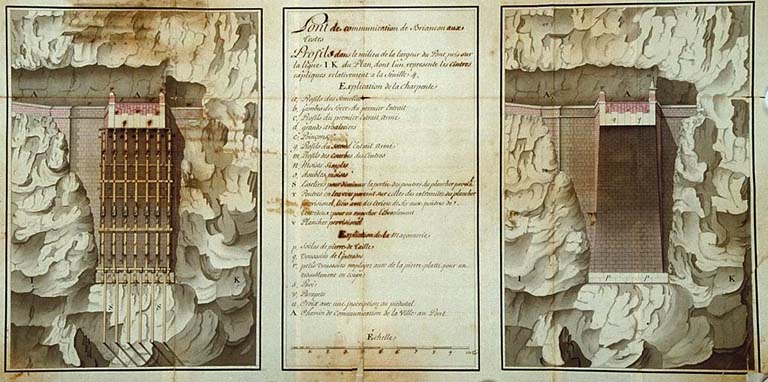 Pont de communication de Briançon aux
testes
Profils dans le milieu de la largeur du Pont, pris sur
la ligne I K du Plan, dont l'un represente les Cintres
expliqués relativement a la feuille 4.
Explication de la Charpente
a, Profils des Semelles
b, Jambes de force du premier Entrait
c, Profils du premier Entrait armé
d, grands arbaletriers
e, Poinçons
Profils du Second Entrait Armé
m, Profils des Courbes des Cintres
n, Moises Simples
o, doubles moises
S, pour diminuer la portée des poutres du plancher
T, Poutres en travers portant sur celles des extremités du plancher
provisionel, liées avec des de fer aux poutres de
pour en empecher l'ebranlement
v, Plancher provisionel
Explication de la Maçonnerie
p, Socles de pierre de taille
q, Voussoirs de l'intrados
r, petits Voussoirs employés avec de la pierre platte pour un
redoublement en coupe
s, Pavé
v, Parapets
u, Croix avec une inscription au piédestal
A, Chemin de Communication de la Ville au Pont.
Echelle
A
A
I
K
S
S
A
A
q
q
I
K
P
P